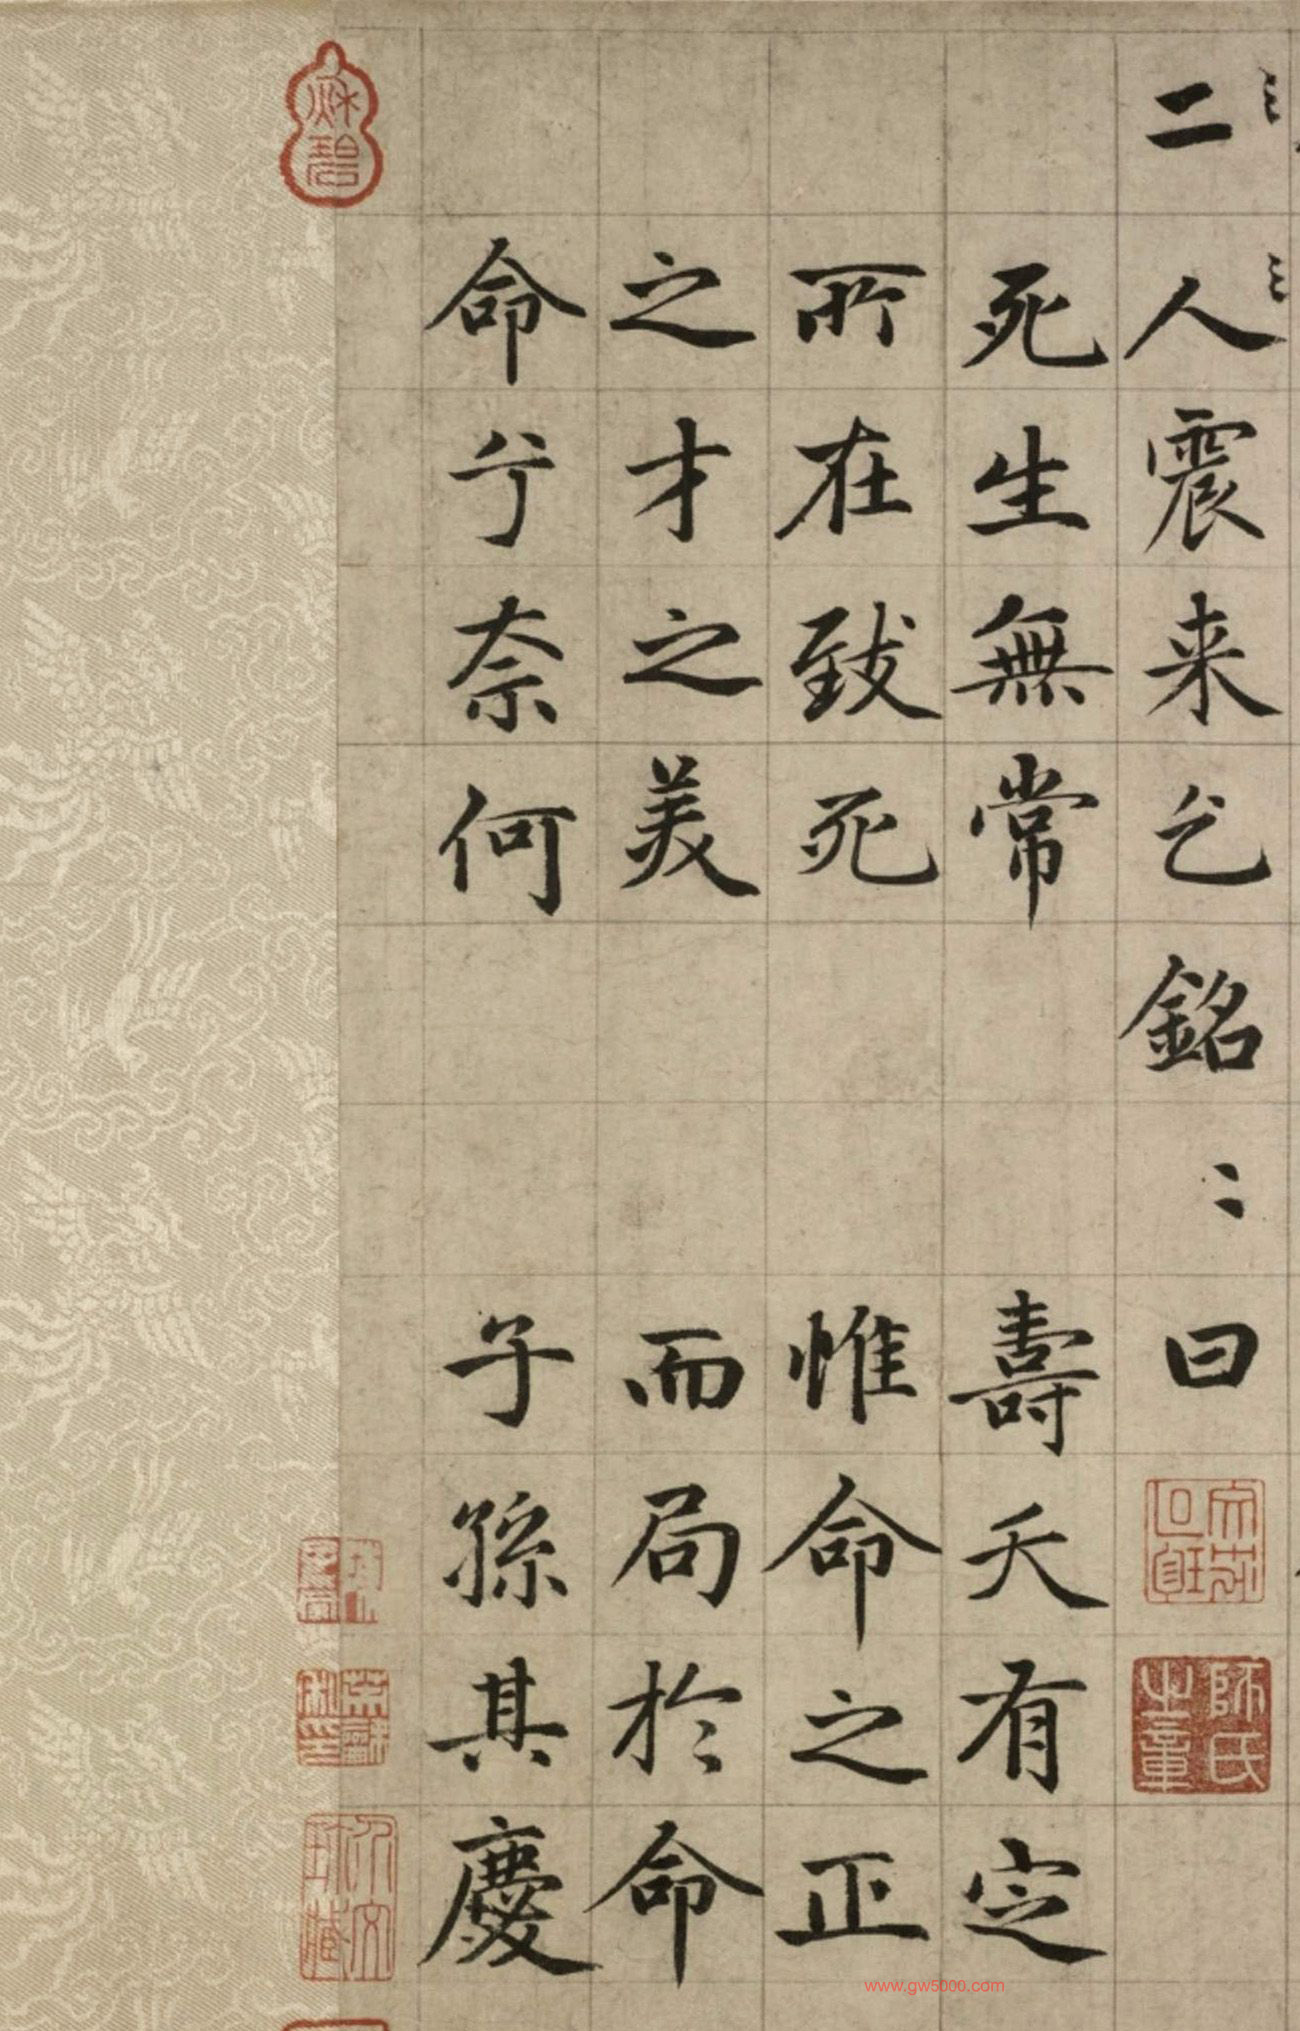 二人震来乞銘〻曰
死生無常 壽夭有定
所在致死 惟命之正
之才之美 而局於命
命兮奈何 子孫其慶
師氏之章
www.gw5000.com